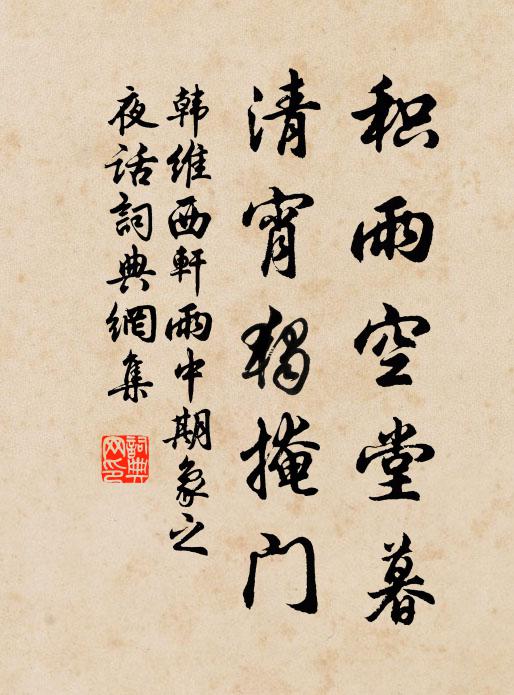 积雨空堂暮
清宵独掩门
韩维西軒雨中期象之
夜话詞典網集
詞典网印